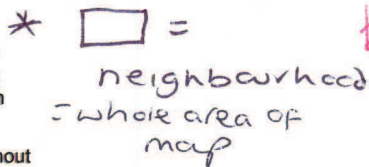 * =
neighbourhood
= whole area of
map
hout